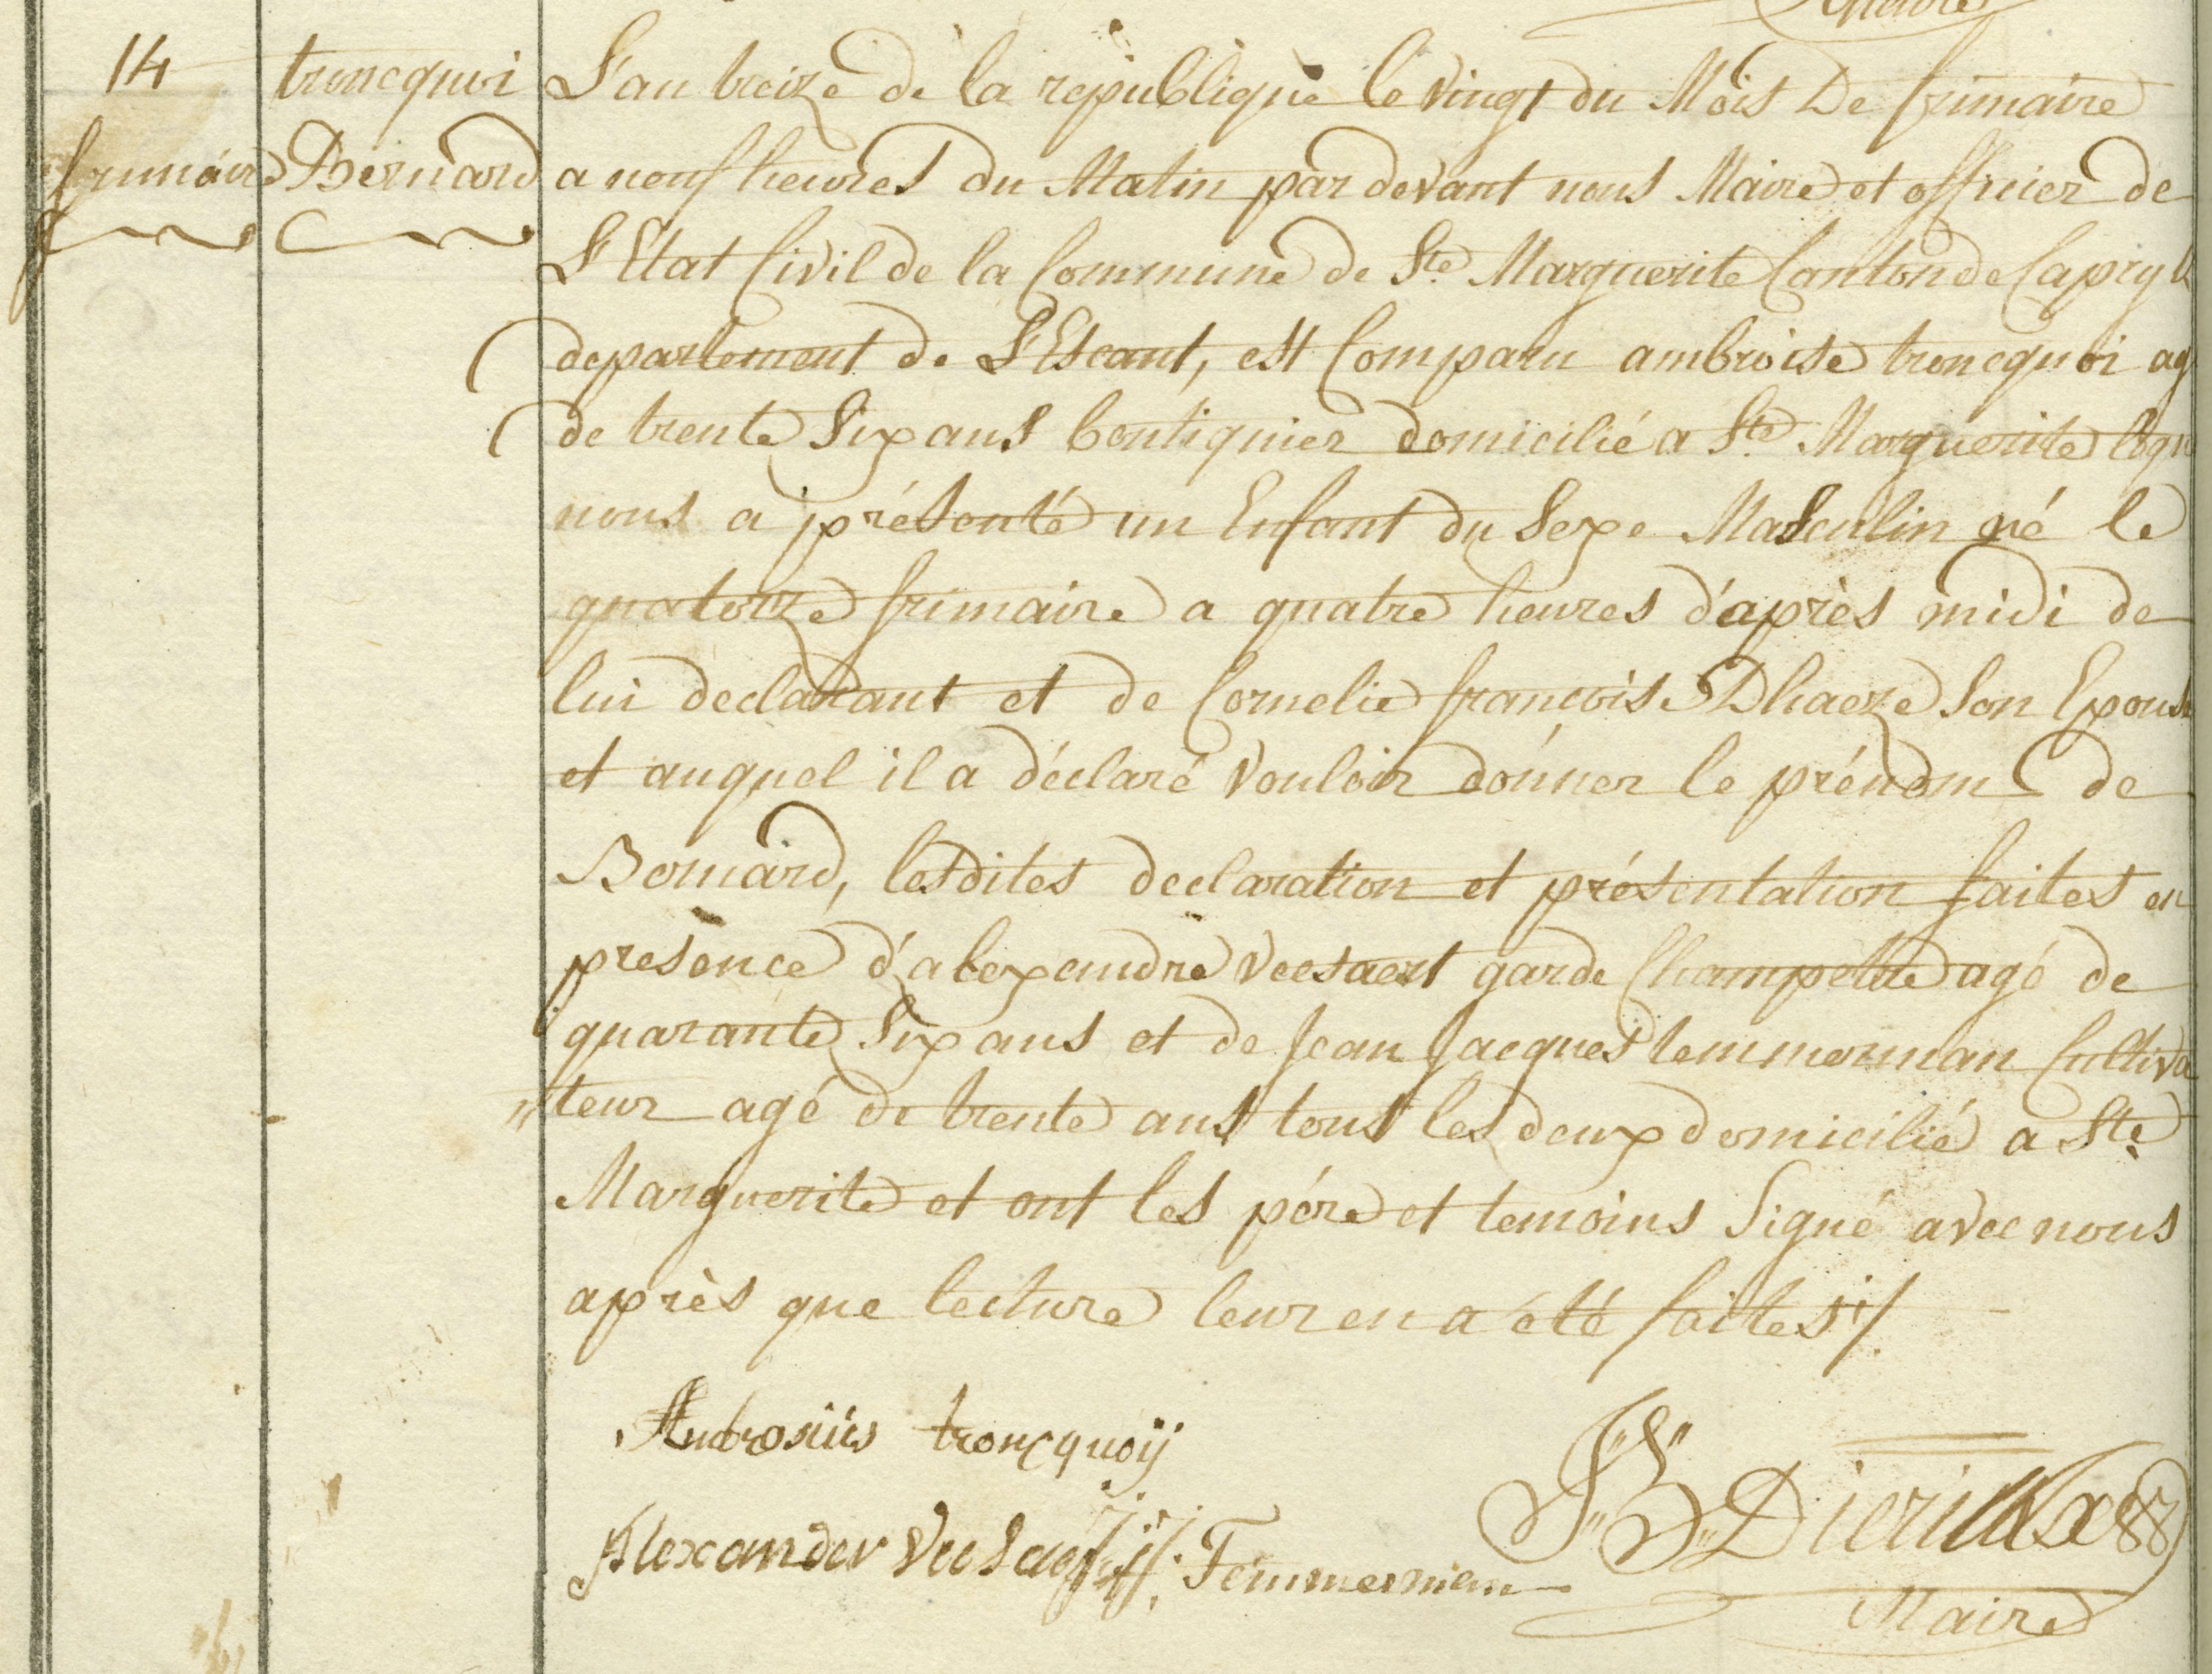 14
frimaire
troncquoi
Bernard
L'an treize de la republique le vingt du Mois De frimaire
a neuf heures du Matin par devant nous Maire et officier de
L'Etat Civil de la Commune de Ste Marguerite Canton de Capryk
departement de L'Escaut, est Comparu ambroise troncquoi ag
de trente Six ans boutiquier domicilié a Ste Marguerite lequ
nous a présenté un Enfant du Sexe Masculin né le
quatorze frimaire a quatre heures d'après midi de
lui declarant et de Cornelie francoise Dhaeze Son Epouse
et auquel il a déclaré vouloir donner le prénom de
Bernard, lesdites declaration et présentation faites en
presence d'alexandre Veesaert garde Champêtre agé de
quarante Six ans et de Jean Jacques temmerman Cultiva
"teur agé de trente ans tous les deux domicilié a Ste
Marguerite et ont les pére et temoins Signé avec nous
après que lecture leur en a été faites ./.
Ambrosiüs troncquoÿ
Alexander Veesaert J: J: Temmerman
J: B: Dierickx
Maire